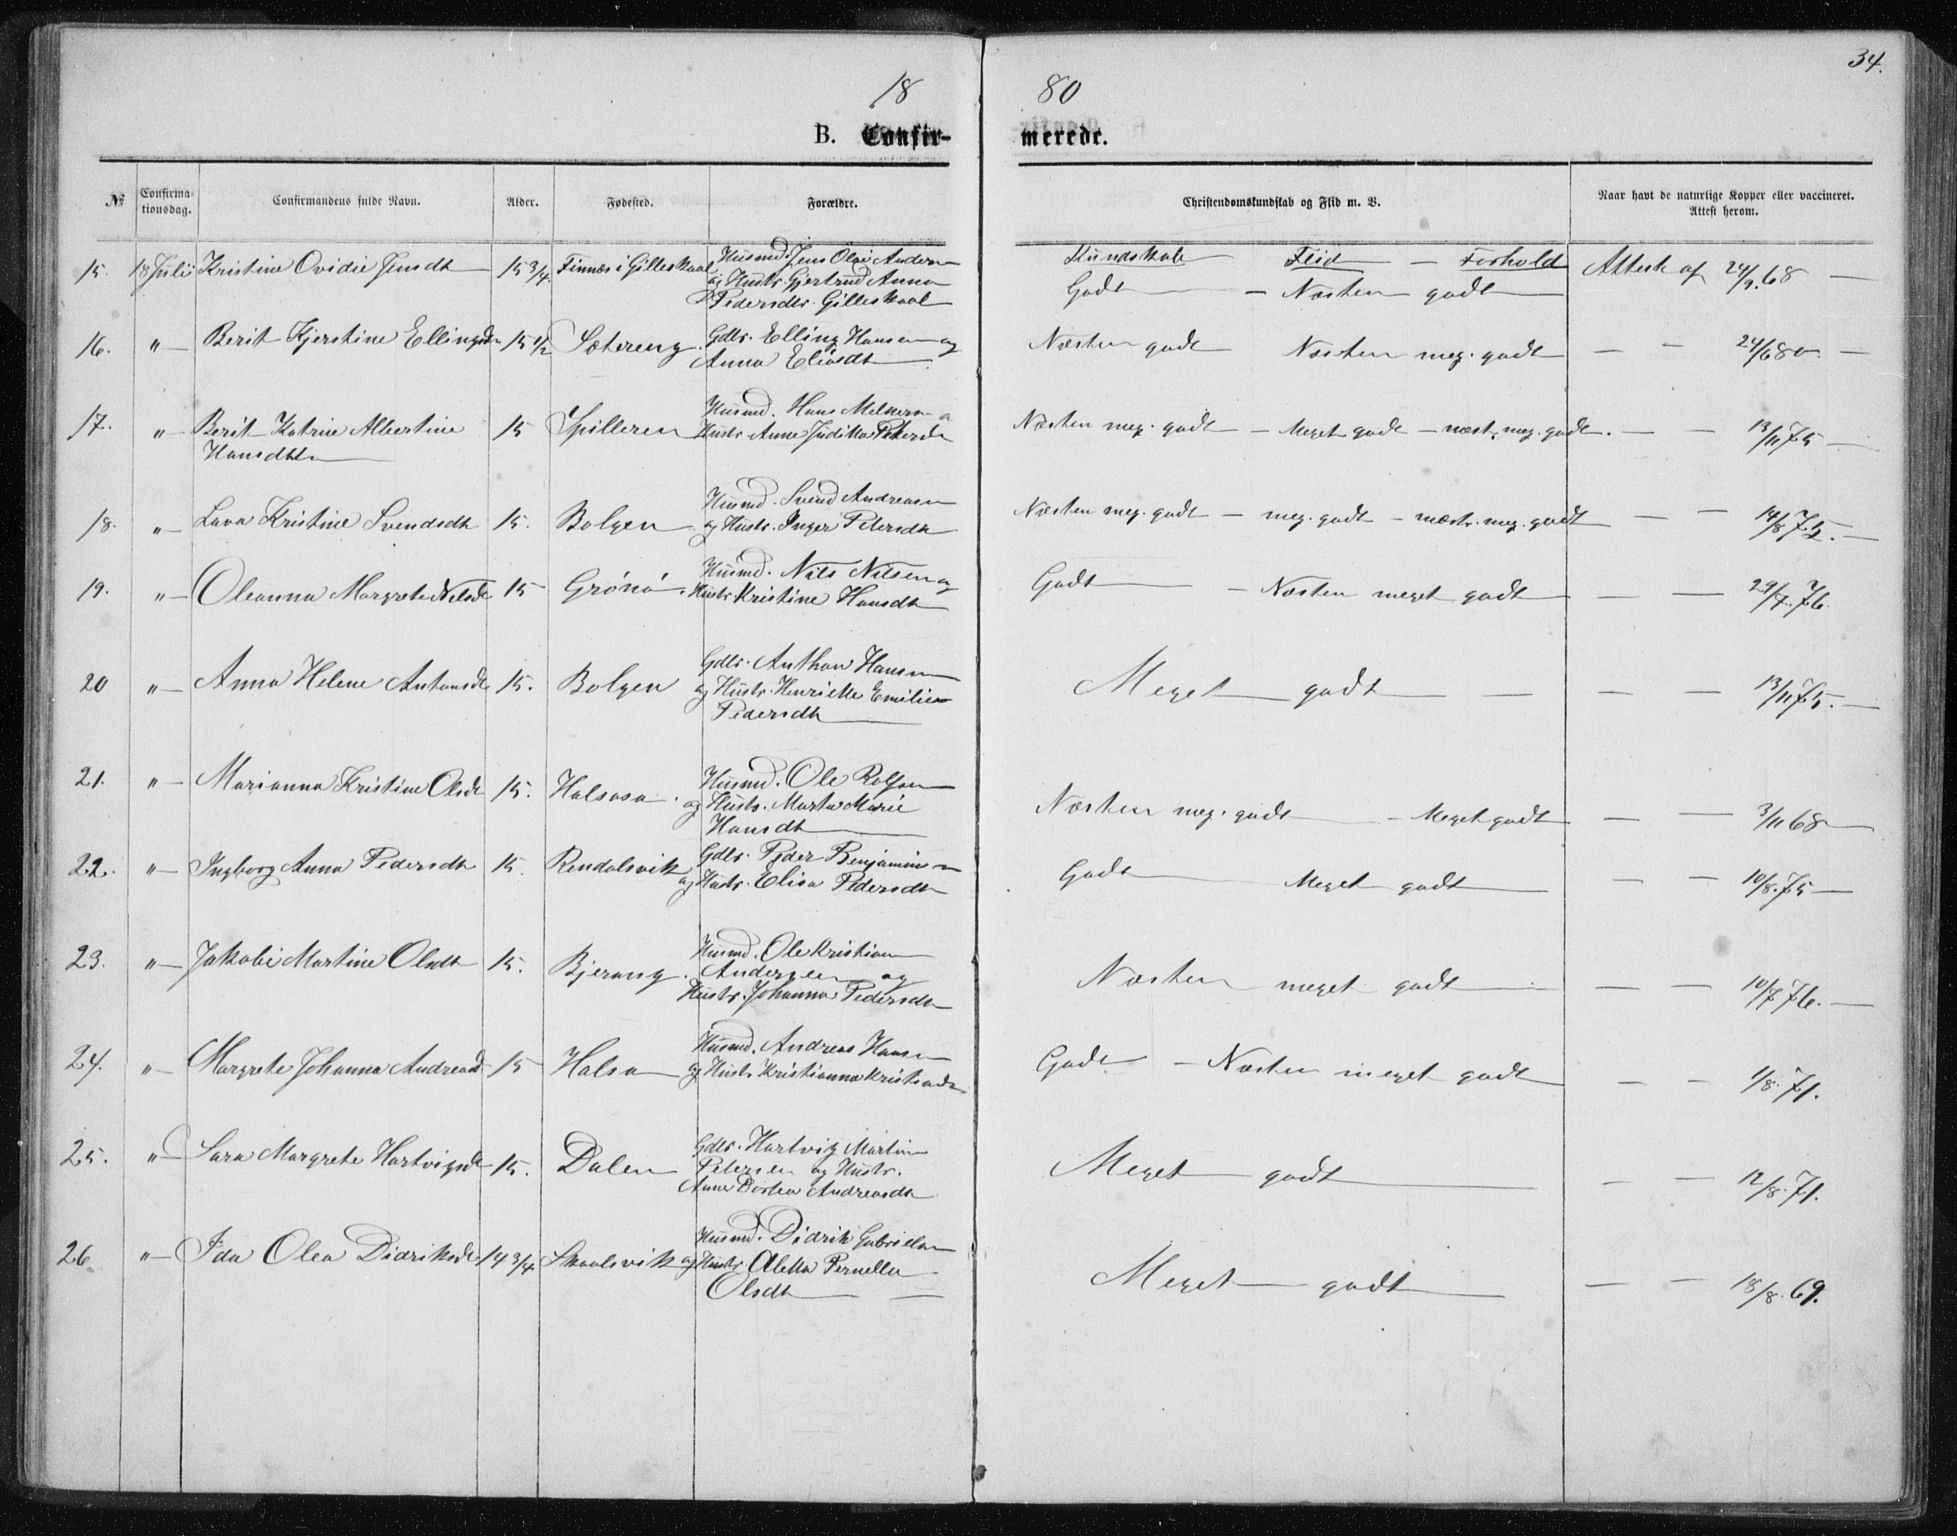 34.
18 80
B. Confirmerede.
№ Confirmationsdag. Confirmandens fulde Navn. Alder. Fødested. Forældre. Christendomskundskab og Flid m. V. Naar havt de naturlige Kopper eller vaccineret. Attest herom.
15. 18 Juli Kristine Ovidie Jensdt 15 3/4. Finnæs i Gilleskaal Husmd. Jens Olai Andersn Kundskab Flid – Forhold Attest af 24/9.68 —
og Hustr. Gjertrud Anna Godt — Næsten godt
Pedersdtr. Gilleskaal
16. " Berit Kjerstine Ellingsdtr 15 1/2 Sætereng Gdbr. Elling Hansen og Næsten godt Næsten meg. godt — — 24/6 80. —
Anna Eliasdt
17. " Berit Katrine Albertine 15 Spilleren Husmd. Hans Næsten meg. godt — Meget godt — næst. meg. godt. — — 13/11 75 —
Hansdttr Hustr Anne Juditha Petersdtr
18. " Lava Kristine Svendsdt 15. Bolgen Husmd. Svend Andreasen Næsten meg. godt — meg. godt — næst. meg. godt — — 14/8 75. —
og Hustr. Inger Petersdtr
19. " Oleanna Margrete Nilsdtr 15 Grönö. Husmd. Nils Nilsen og Godt — Næsten meget godt — — 29/7. 76.
Hustr Kristine Hansdtr
20 " Anna Helene Antonsdtr 15. Bolgen Gdbr. Anthon Hansen Meget godt — — 13/11 75. —
og Hustr. Henrikke Emilie
Pedersdtr
21. " Marianna Kristine Olsdtr 15. Halsaså. Husmd. Ole Rolfsen Næsten meg. godt — Meget godt — — 3/11 68 —
og Hustr. Marta Marie
Hansdtr
22. " Ingborg Anna Pedersdtr 15. Rendalsvik Gdbr. Peder Benjaminsn Godt Meget godt — — 10/8. 75 —
og Hustr. Elisa Pedersdtr
23. " Jakobi Martine Olsdtr 15. Bjerang. Husmd. Ole Kristian Næsten meget godt — — 10/7 76. —
Andersen og
Hustr. Johanna Pedersdtr
24. " Margrete Johanna Andreasd 15 Halsa Husmd. Andreas Hansen Godt — Næsten meget godt — — 1/8. 71.
og Hustr Kristianna Kristiansdtr
25. " Sara Margrete Hartvigsdtr 15. Dalen Gdbr. Hartvig Martin Meget godt — — 12/8. 71.
Petersen og Hustr.
Anne Dortea Andreasdtr
26 " Ida Olea Didriksdtr 14 3/4 Skaalsvik Husmd. Didrik Gabrielsen Meget godt — — 18/8. 69.
og Hustr Aletta Pernella
Olsdtr